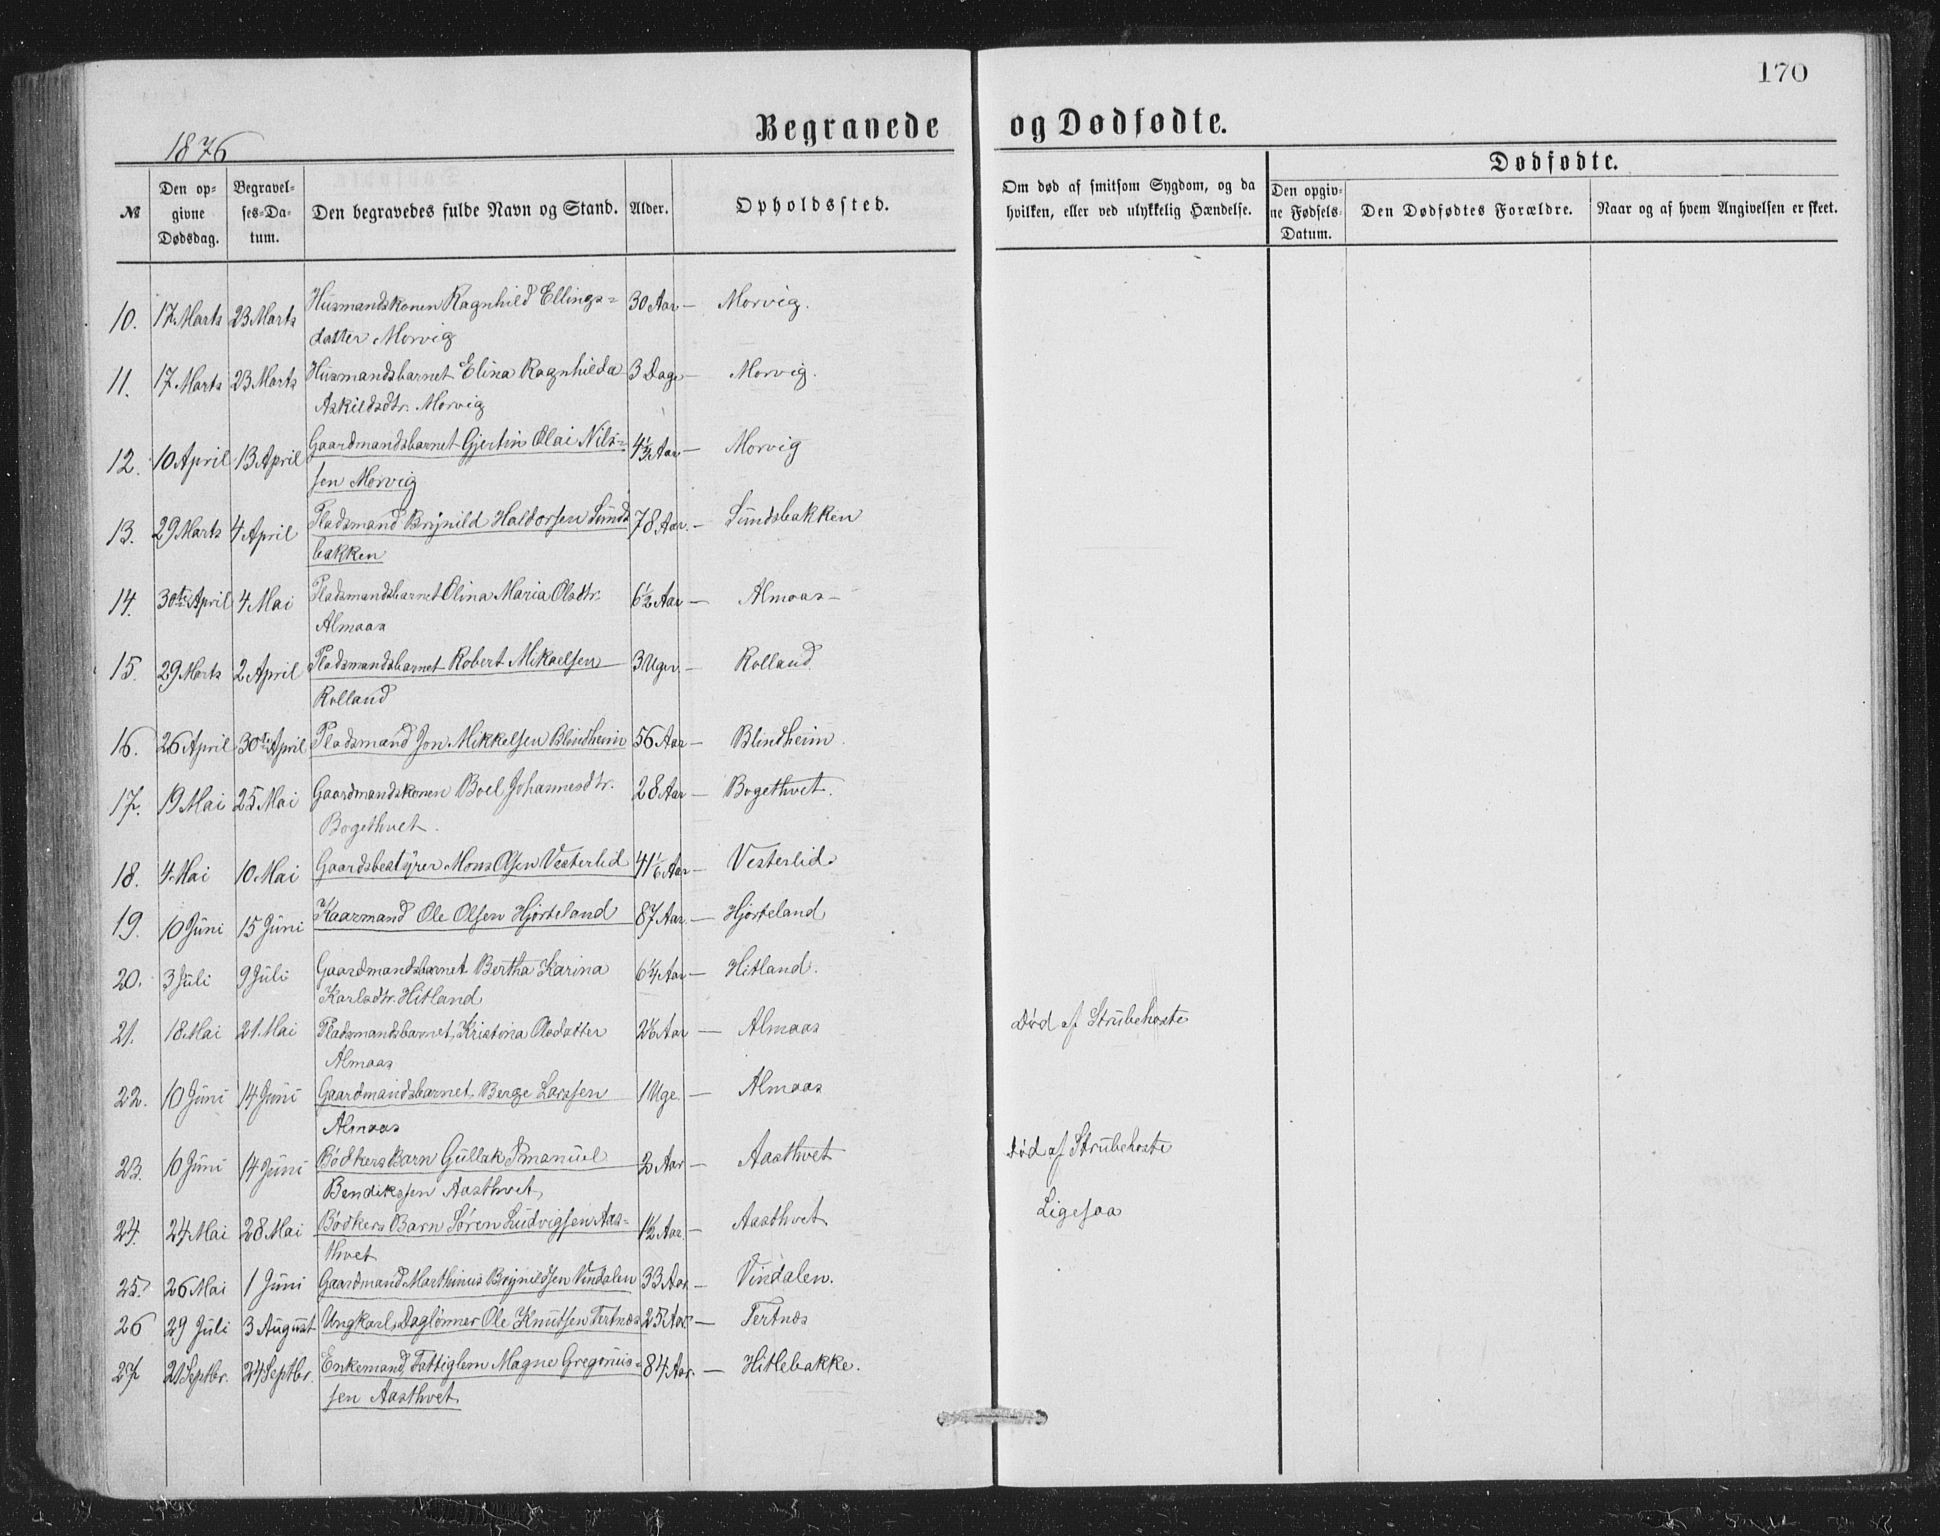 170
Begravede og Dødfødte.
1876
Dødfødte.
№
Den opgivne Dødsdag.
Begravelses-Datum.
Den begravedes fulde Navn og Stand.
Alder.
Opholdssted.
Om død af smitsom Sygdom, og da hvilken, eller ved ulykkelig Hændelse.
Den opgivne Fødsels-Datum.
Den Dødfødtes Forældre.
Naar og af hvem Angivelsen er skeet.
10. 17 Marts 23 Marts Husmandskonen Ragnhild Ellings= 30 Aar — Morvig.
datter Morvig
11. 17 Marts 23 Marts Husmandsbarnet Elina Ragnhilda 3 Dage — Morvig.
Askildsdtr. Morvig
12. 10 April 13 April Gaardmandsbarnet Gjertin Olai Nils= 4½ Aar — Morvig
sen Morvig
13. 29 Marts 4 April Pladsmand Brynild Haldorsen Sunds 78 Aar. — Sundsbakken
bakken
14. 30te April 4 Mai Pladsmandsbarnet Olina Maria Olsdtr. 6½ Aar — Almaas —
Almaas
15. 29 Marts 2 April Pladsmandsbarnet Robert Mikaelsen 3 Uger. — Rolland
Rolland
16. 26 April 30te April Pladsmand Jon Mikkelsen Blindheim 56 Aar — Blindheim.
17. 19 Mai 25 Mai Gaardmandskonen Boel Johannesdtr. 28 Aar — Bogethvet.
Bogethvet.
18. 4 Mai 10 Mai Gaardsbestyrer Mons Olsen Vesterlid 41⅙ Aar — Vesterlid.
19. 10 Juni 15 Juni Kaarmand Ole Olsen Hjorteland 87 Aar. — Hjorteland
20. 3 Juli 9 Juli Gaardmandsbarnet Bertha Karina 6¼ Aar — Hitland.
Karlsdtr. Hitland
21. 18 Mai 21 Mai Pladsmandsbarnet, Kristina Olsdatter 2⅙ Aar — Almaas Død af Strubehoste
Almaas
22. 10 Juni 14 Juni Gaardmandsbarnet, Berge Larssen 1 Uge — Almaas
Almaas
23. 10 Juni 14 Juni Bødkers Barn Gullak Emanuel 2 Aar — Aasthvet Død af Strubehoste
Bendikssen Aasthvet,
24. 24 Mai 28 Mai Bødkers Barn Søren Ludvigsen Aas= 1½ Aar. — Aasthvet Ligesaa
thvet
25. 26 Mai 1 Juni Gaardmand Marthinus Brynildsen Vindalen 33 Aar — Vindalen.
26 29 Juli 3 August Ungkarl, Daglønner Ole Knutsen Tertnæs 25 Aar — Tertnæs
27 Septbr. 24 Septbr. Enkemand, Fattiglem Magne Gregorius= 84 Aar. — Hitlebakke.
sen Aasthvet